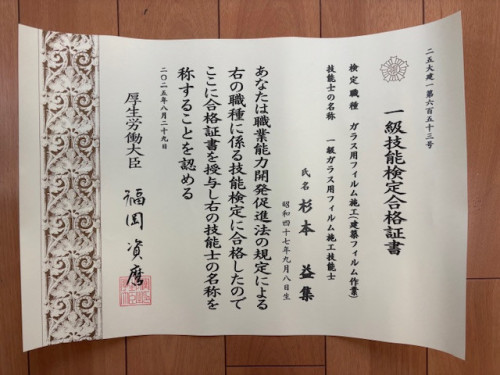 二五大建一第六百五十三号
一級技能検定合格証書
検定職種　ガラス用フィルム施工（建築フィルム作業）
技能士の名称　一級ガラス用フィルム施工技能士
氏名　杉本　益集
昭和四十七年九月八日生
あなたは職業能力開発促進法の規定による
右の職種に係る技能検定に合格したので
ここに合格証書を授与し右の技能士の名称を
称することを認める
二〇二五年八月二十九日
厚生労働大臣　福岡資麿